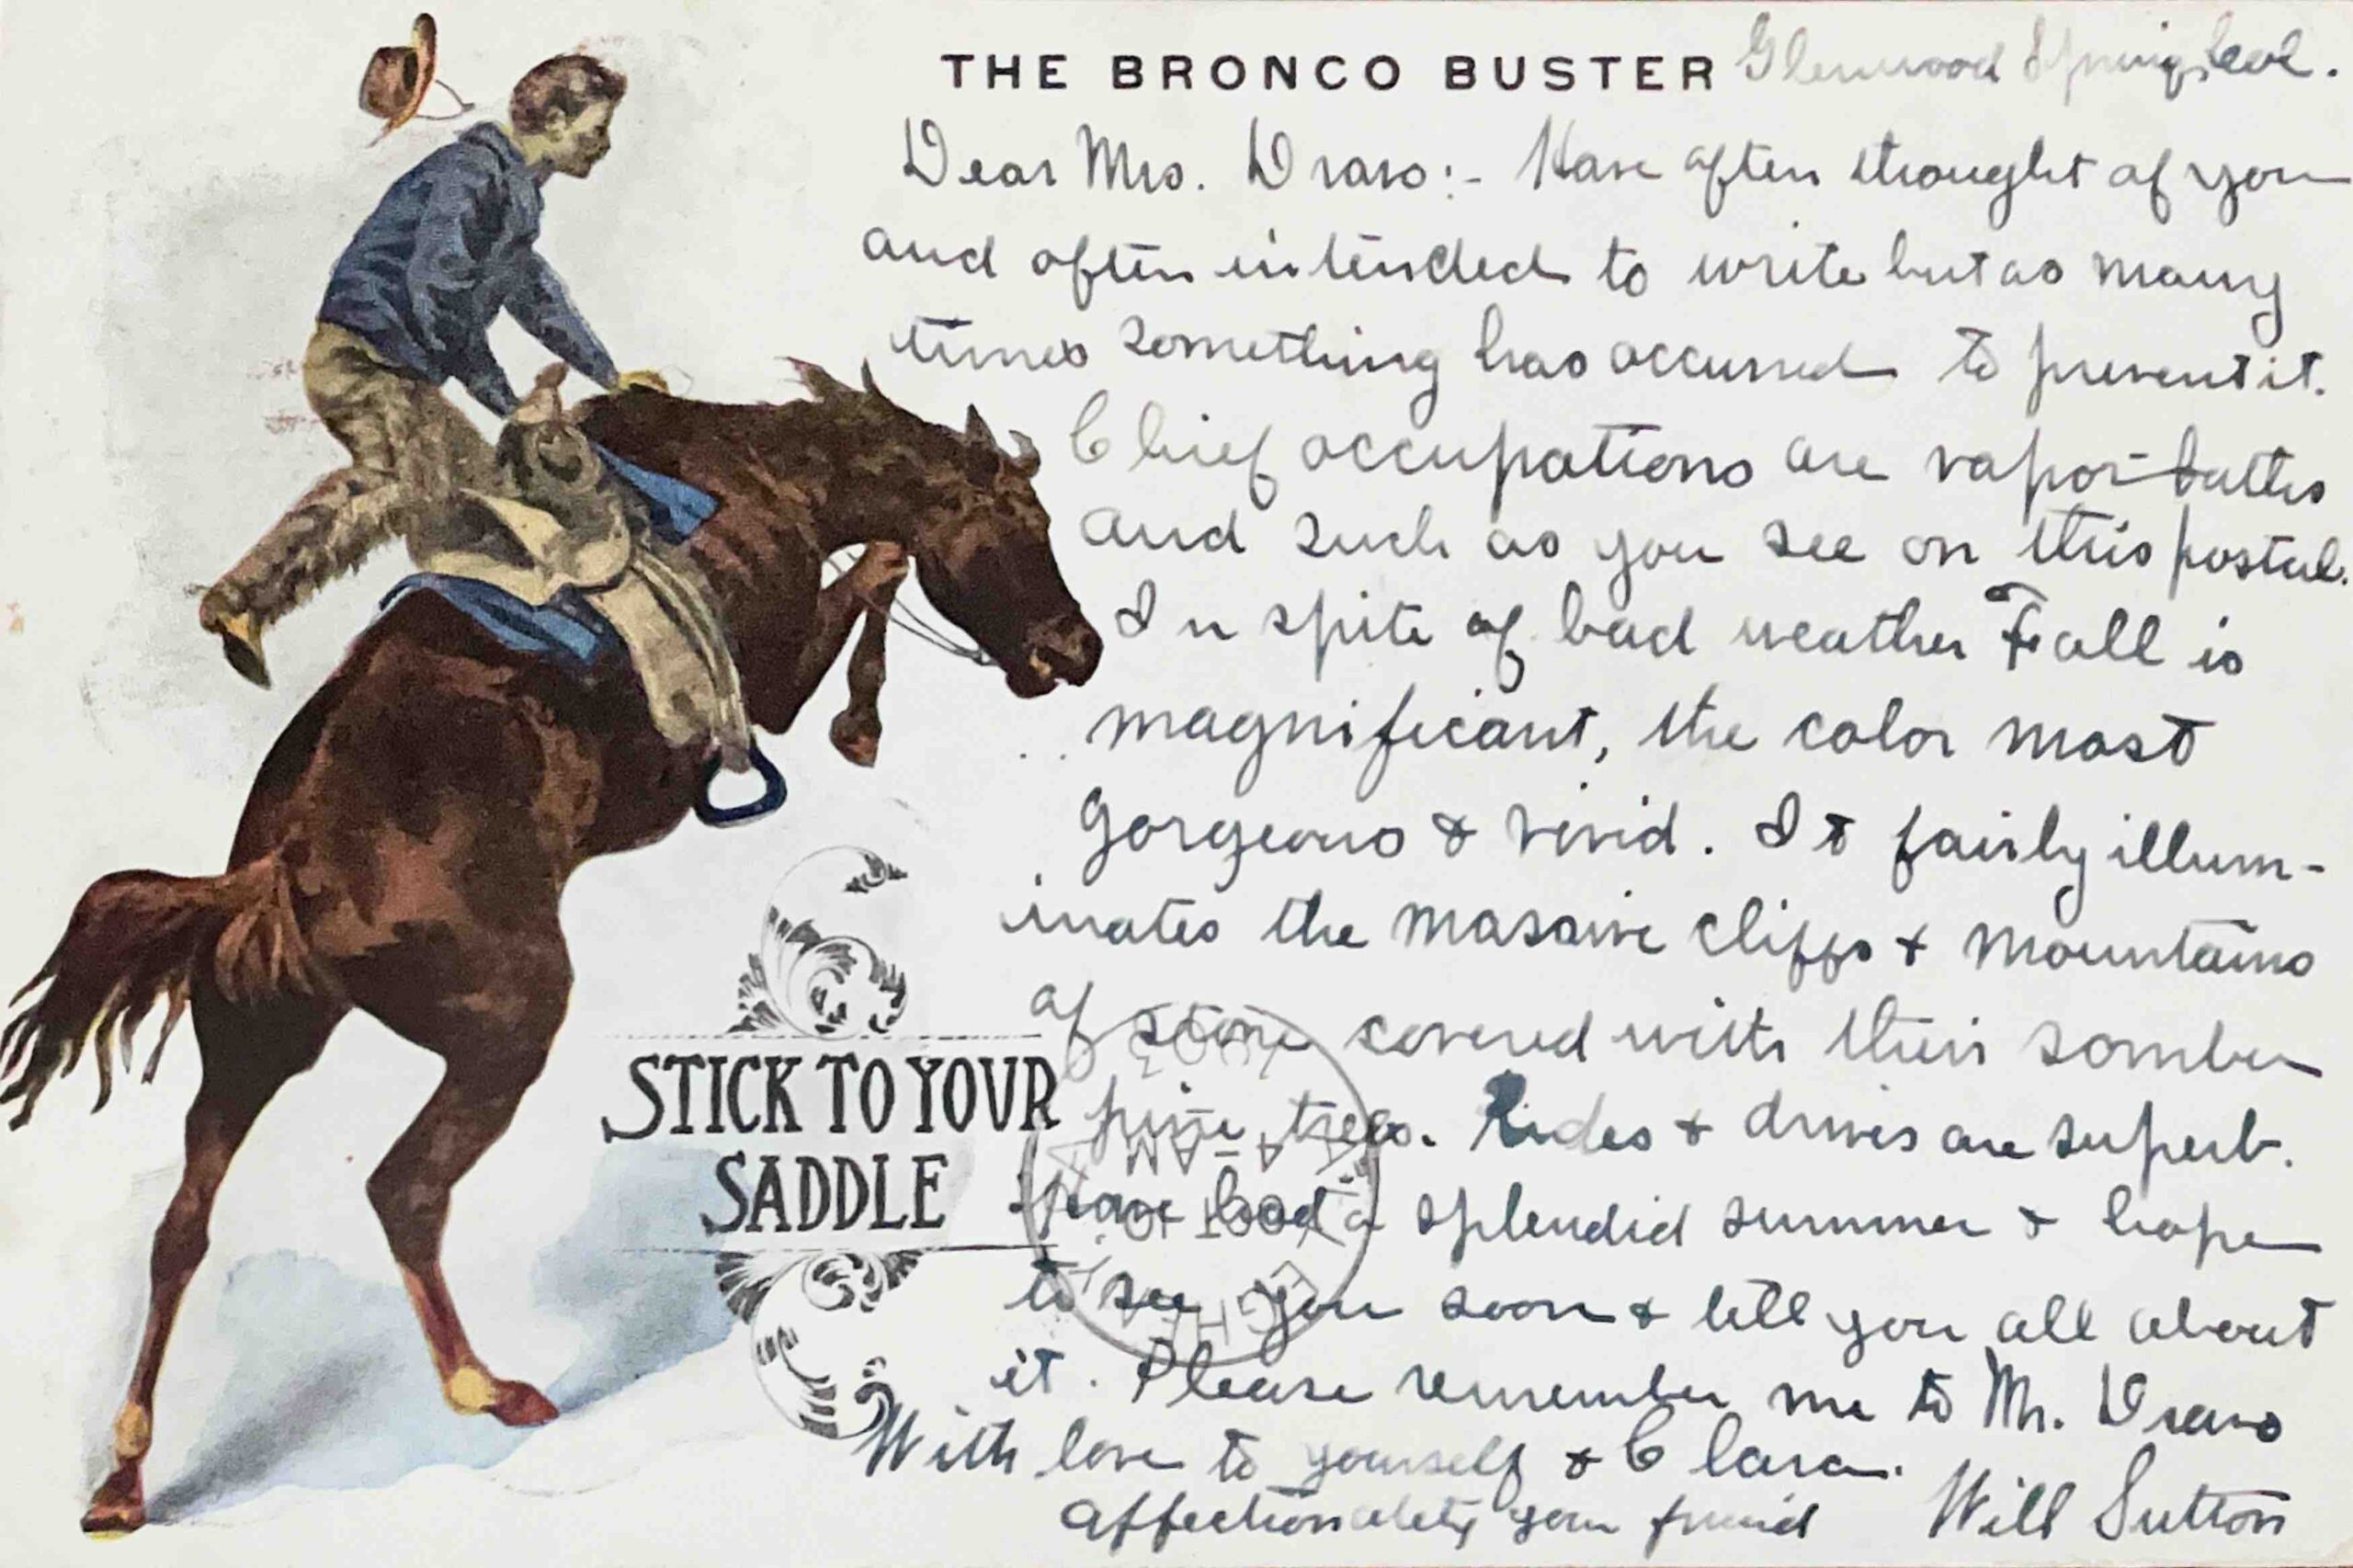 THE BRONCO BUSTER Glenwood Springs, Col.
Dear Mrs. Dravo:- Have often thought of you
and often intended to write but as many
times something has occurred to prevent it.
Chief occupations are vapor-baths
and such as you see on this postal.
In spite of bad weather Fall is
magnificant, the color most
gorgeous & vivid. It fairly illum-
inates the massive cliffs & mountains
of stone covered with their somber
pine trees. Rides & drives are superb.
Have had a splendid summer & hope
to see you soon & tell you all about
it. Please remember me to Mr. Dravo
With love to yourself & Clara.
affectionately your friend Will Sutton
STICK TO YOUR
SADDLE